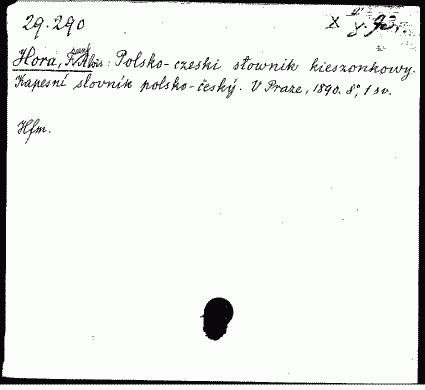 29.290
Hora, Fr. Alois: Polsko-czeski słownik kieszonkowy.
Kapesní slovník polsko-český. V Praze, 1890. 8°, 1 sv.
Hfm.